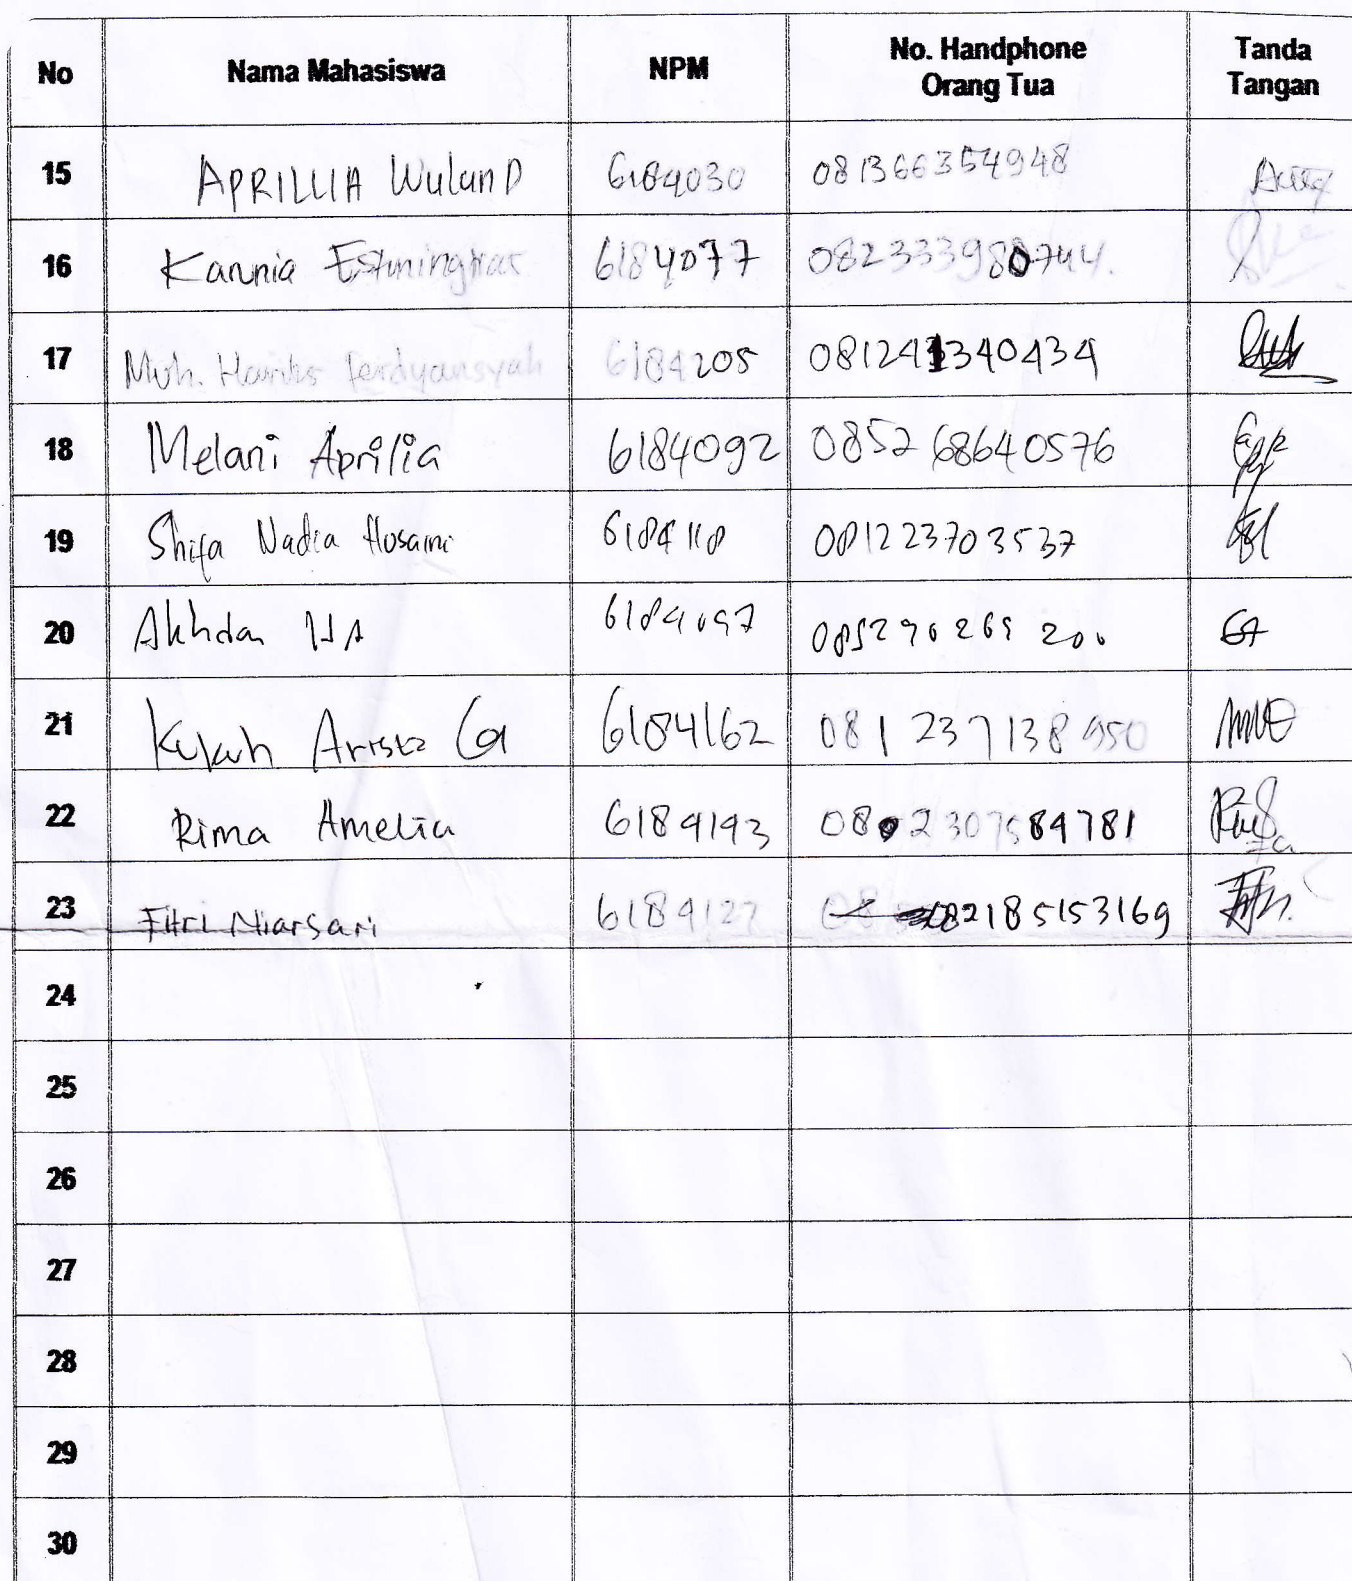 No Nama Mahasiswa NPM No. Handphone Orang Tua Tanda Tangan
15 APRILLIA Wulan D 6184030 081366354948
16 Karunia 6184077 082333980744.
17 Moh. Ferdyansyah 6184205 081241340434
18 Melani Aprilia 6184092 085268640576
19 Shifa Nadia Husaini 6184118 081223703537
20 Akhdan 6184097 085290265200
21 Kukuh Arista 6184162 081237138950
22 Rima Amelia 6184193 082307584781
23 Fitri Niarsari 6184127 082185153169
24
25
26
27
28
29
30